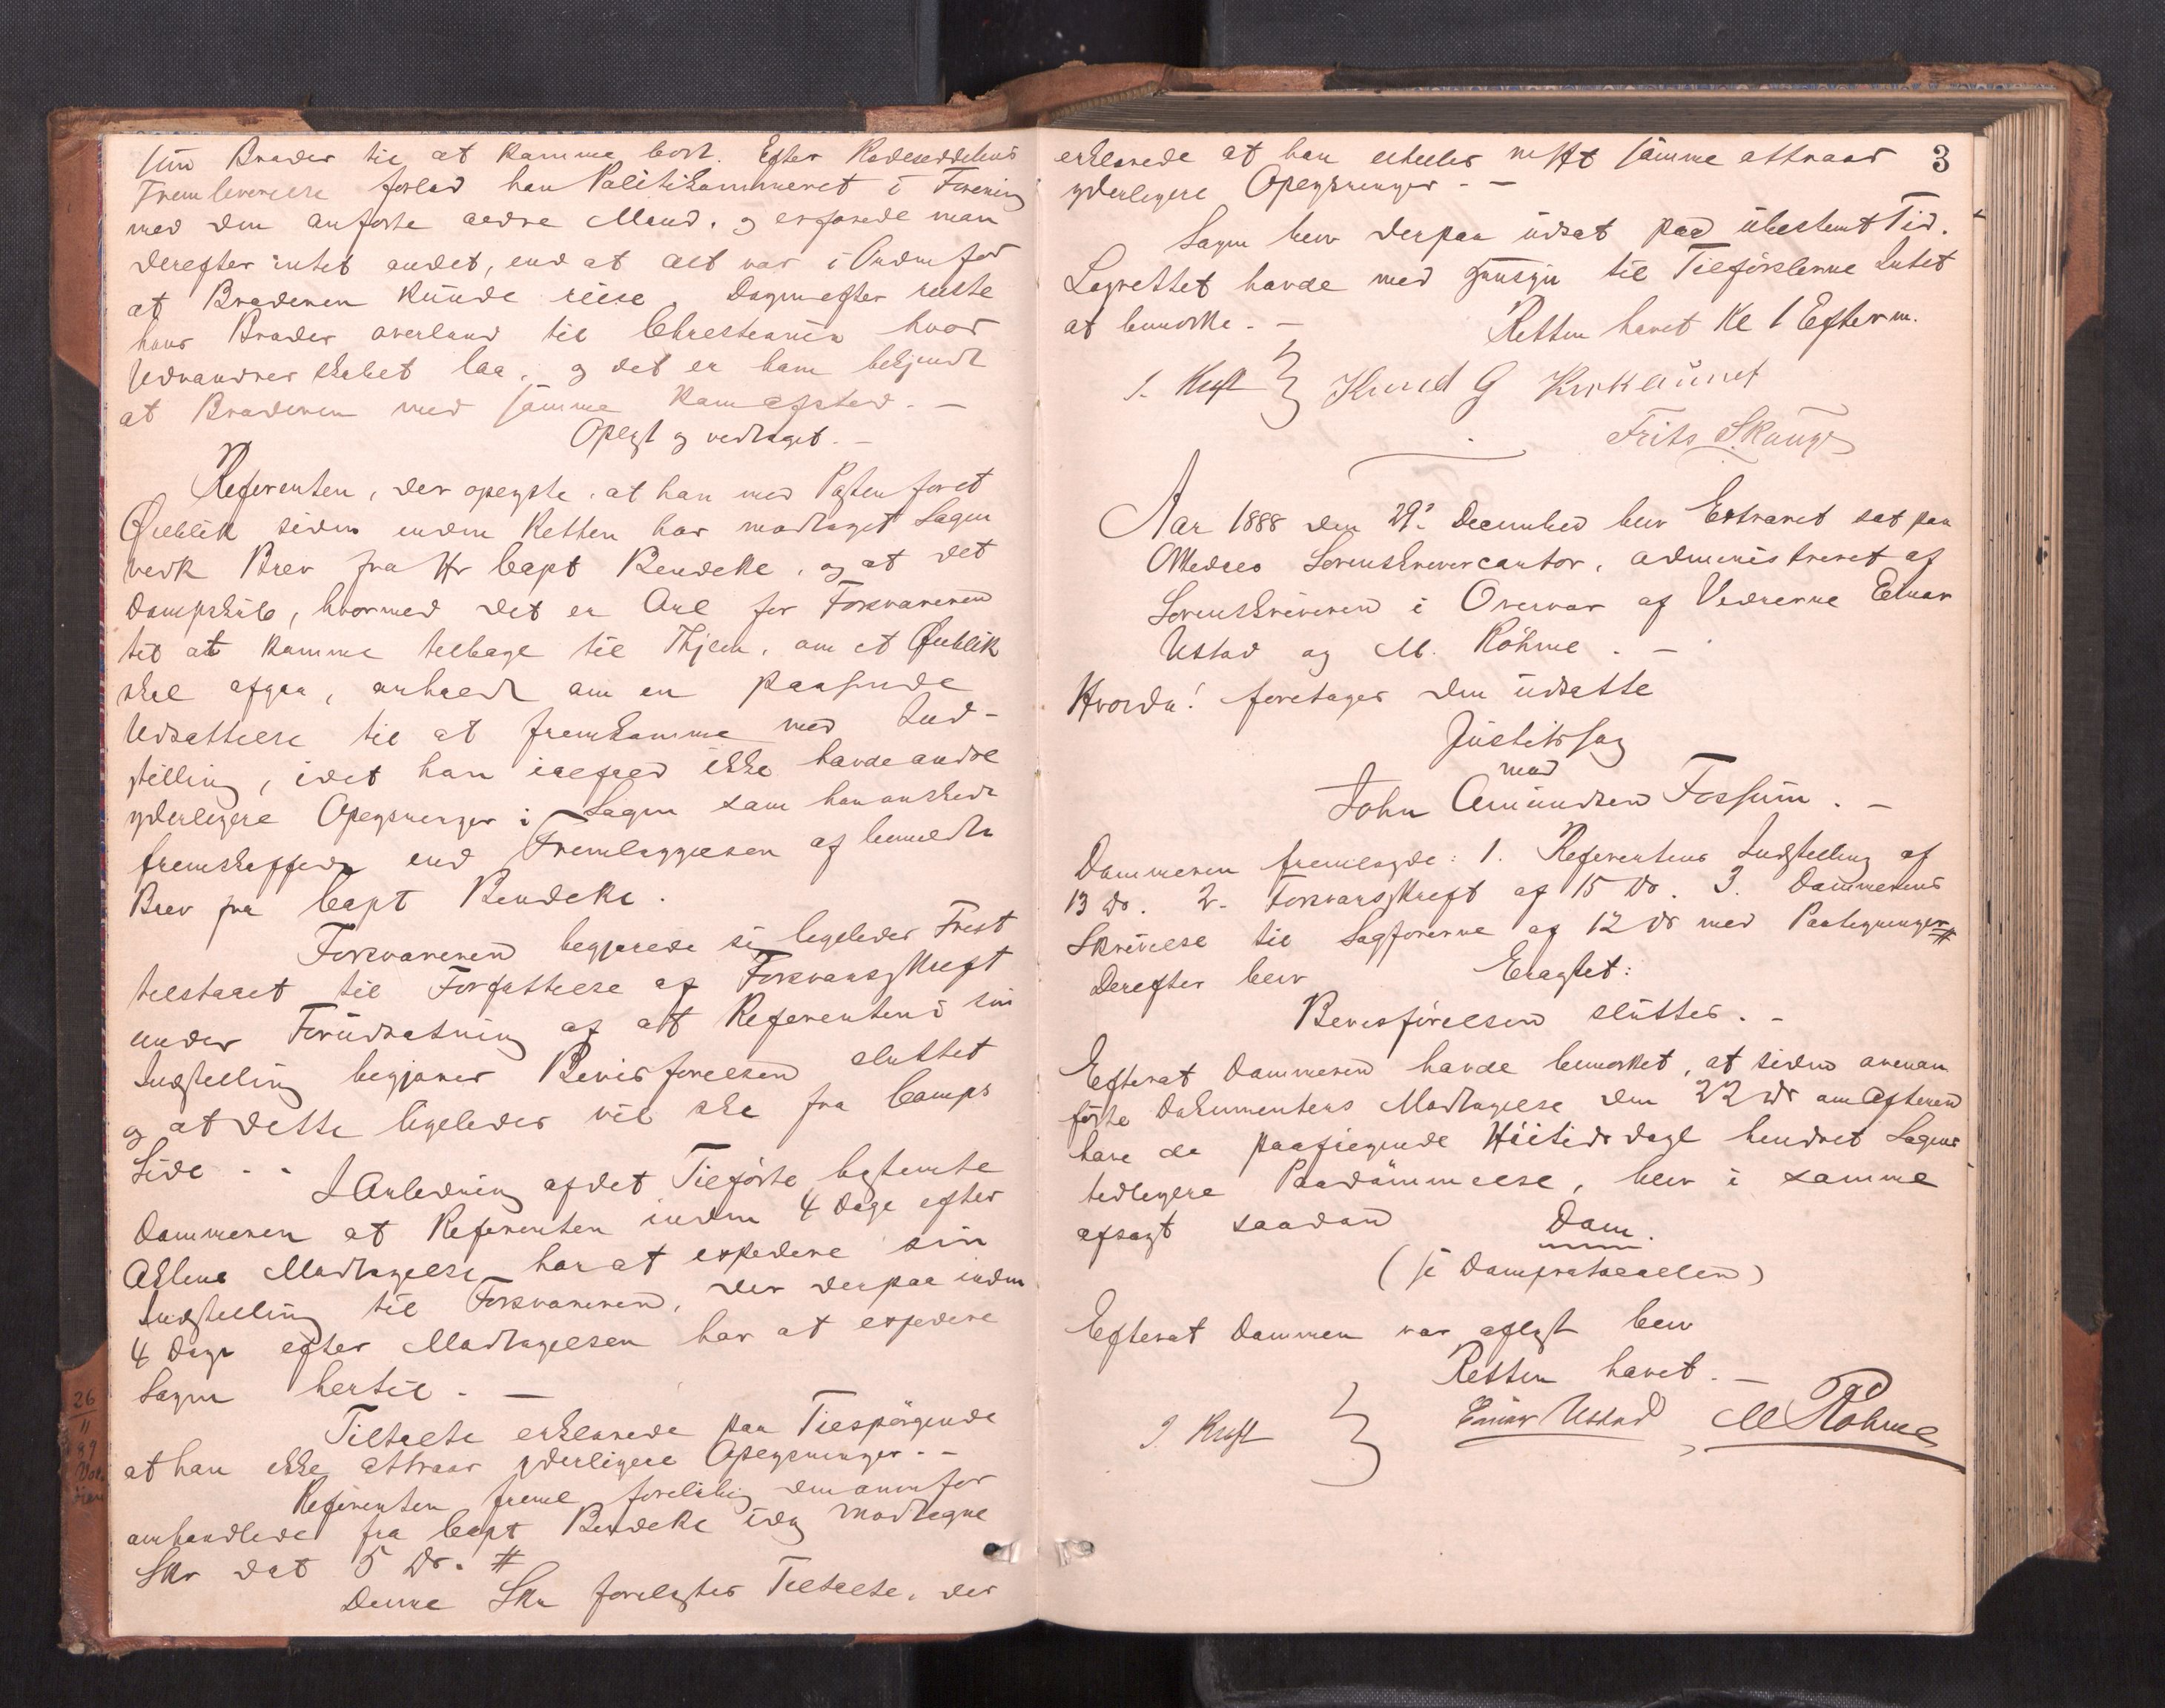 sin Broder til at komme bort. Efter Rodeseddelens
Fremleverelse forlod han Politikammeret i Forening
med den anførte ældre Mand, og erfarede man
derefter intet andet, end at alt var i Orden for
at Broderen kunde reise. Dagen efter reiste
hans Broder overland til Christiania hvor
Udvandrer skibet laa, og det er ham bekjendt
at Broderen med samme kom afsted. —
Oplyst og vedtaget. —
Referenten, der oplyste, at han med Posten foret
Øieblik siden under Retten har modtaget Sagen
vedk Brev fra Hr Capt Bendeke, og at det
Dampskib, hvormed det er Anl for Forsvareren
tet at komme tilbage til Hjem, om et Øieblik
skal afgaa, anholdt om en passende
Udsættelse til at fremkomme med Ind-
stilling, idet han ialfald ikke havde andre
yderligere Oplysninger i Sagen som han ønskede
fremskaffede end Fremlæggelsen af bemeldte
Brev fra Capt Bendeke.
Forsvareren begjærede sig ligeledes Frist
tilstaaet til Forfattelse af Forsvarsskrift
under Forudsætning af at Referenten i sin
Indstilling begjærer Bevisførelsen sluttet
og at dette ligeledes vil ske fra Comps
Side. -
I Anledning af det Tilførte bestemte
Dommeren at Referenten inden 4 Dage efter
Aktens Modtagelse har at expedere sin
Indstilling til Forsvareren, der derpaa inden
4 Dage efter Modtagelsen har at expedere
Sagen hertil. —
Tiltalte erklærede paa Tilspørgende
at han ikke attraar yderligere Oplysninger. -
Referenten freml foreløbig den ovenfor
omhandlede fra Capt Bendeke idag modtagne
Skr dat 5 ds. #
Denne Skr forelagtes Tiltalte, der
3
erklærede at han eiheller mht samme attraar
yderligere Oplysninger. —
Sagen blev derpaa udsat paa ubestemt Tid.
Lagrettet havde med Hensyn til Tilførslerne Intet
at bemærke. — Retten hævet Kl 1 Efterm.
Knud G Kirkaunet
Frits Skauge
Aar 1888 den 29de December blev Extraret sat paa
Sorenskrivercontor, administreret af
Sorenskriveren i Overvær af Vidnerne Einar
Ustad og M. Röhme. —
Hvorda! foretages den udsatte
Justitssag
mod
John Amundsen Fossum. —
Dommeren fremlagde: 1. Referentens Indstilling af
13 ds. 2. Forsvarsskrift af 15 ds. 3. Dommerens
Skrivelse til Sagførerne af 12 ds med Paategninger #
Derefter blev Eragtet:
Bevisførelsen sluttes. -
Efterat Dommeren havde bemærket, at siden ovenan
førte Dokumenters Modtagelse den 22 ds om Aftenen
have de paafølgende Høitidsdage hindret Sagens
tidligere Paadømmelse, blev i samme
afsagt saadan Dom.
(se Domprotocollen)
Efterat Dommen var oplæst blev
Retten hævet. —
Einar Ustad, M Röhme
26
11
89